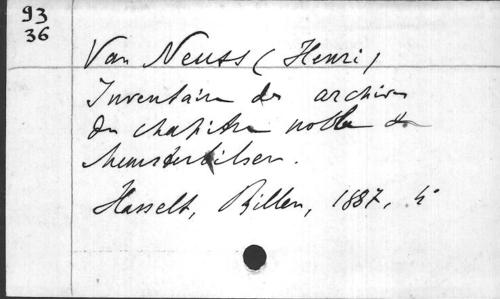 93
36
Van Neuss (Henri)
Inventaire des archives
du chapitre noble de
Munsterbilsen.
Hasselt, Billen, 1887, 4°